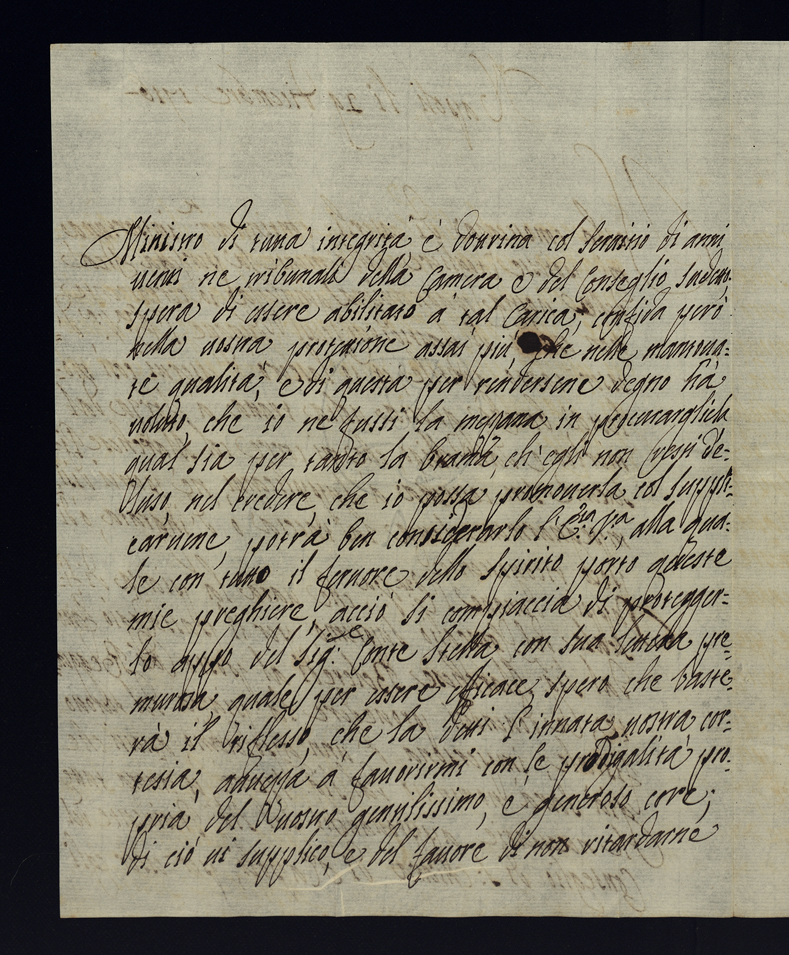 Ministro di tanta integrità e dottrina col servitio di anni
venti ne tribunali della Camera e del Conseglio
spera di essere abilitato à tal Carica, confida però
nella vostra protezzione assai più, che nelle mentova=
te qualità, e di questa per rendersene degno hà
voluto che io ne fussi la mezzana in procurargliela
qual sia per tanto la brama, ch'egli non resti de=
luso, nel credere, che io possa promoverla col suppli=
carvene, potrà ben considerarlo l'E.za V.ra, alla qua=
le con tutto il fervore dello spirito porto queste
mie preghiere, acciò si compiaccia di protegger=
lo appo del Sig.e Conte Stella con sua lettera pre=
murosa quale per essere efficace, spero che baste=
rà il riflesso, che la detti l'innata vostra cor=
tesia, advezza à favorirmi con le prodigalità pro=
prià del vostro gentilissimo, e generoso core;
di ciò vi supplico, e del favore di non ritardarne